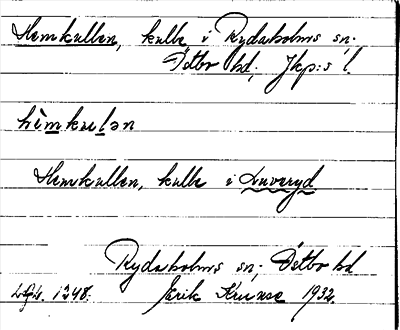 Hemkullen, kulle i Rydaholms sn.
Östbo hd, Jkp:s l.
hèmkulən
Hemkullen, kulle i Luveryd
Rydaholms sn, Östbo hd
1248. Erik Krunse 1932.